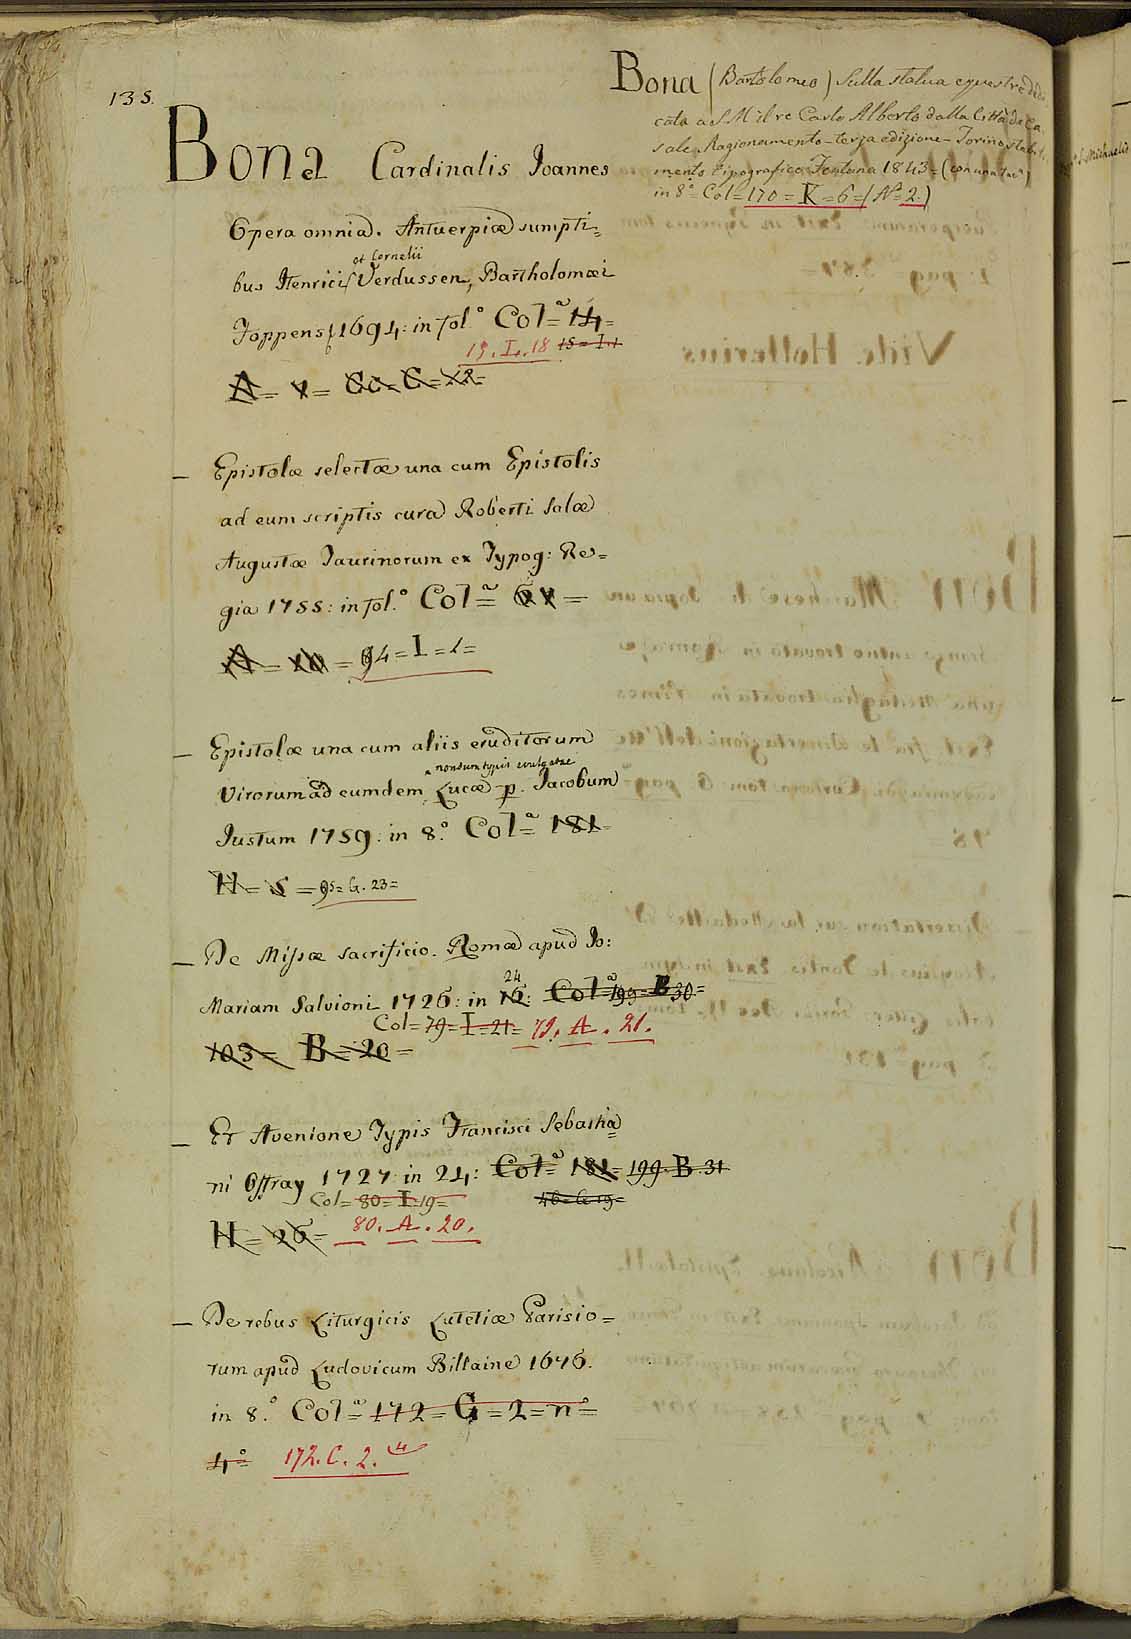 135.
Bona Cardinalis Joannes
Opera omnia. Antuerpiæ sumpti=
bus Henrici et Cornelii Verdussen, Bartholomæi
Foppens 1694: in fol.° Col.ª = 14 =
19. I. 18 15 = I. 1
A = 4 =
— Epistolæ selectæ una cum Epistolis
ad eum scriptis cura Roberti Salæ
Augustæ Taurinorum ex Typog: Re=
gia 1755: in fol.° Col.ª =
A = 10 = 94 = I = 1 =
— Epistolæ una cum aliis eruditorum
nondum typis evulgatæ
Virorum ad eumdem Lucæ p. Jacobum
Justum 1759: in 8.° Col.ª = 181
H = 5 = 95 = G. 23 =
— De Missæ sacrificio. Romæ apud Jo:
Mariam Salvioni 1726: in 16: 24 Col.ª = 199 = B 30 =
Col = 79 = I = 21 = 79. A. 21.
103 = B = 20 =
— Et Avenione Typis Francisci Sebastia=
ni Offray 1727: in 24: Col.ª = 181 = 199. B. 31
Col = 80 = I = 19 = 46 = G. 19 =
H = 26 = 80. A. 20.
— De rebus Liturgicis Lutetiæ Parisio=
rum apud Ludovicum Billaine 1676.
in 8.° Col.ª = 172 = G = 2 = n.° =
4.° 172. C. 2. 4
Bona (Bartolomeo) Sulla statua equestre dedi
cata a S. M. il re Carlo Alberto dalla Città di Ca
sale. Ragionamento - terza edizione - Torino, stabili
mento tipografico Fontana 1843 = (con una tav.ª)
in 8.° Col = 170 = K = 6 = (N.° 2.)